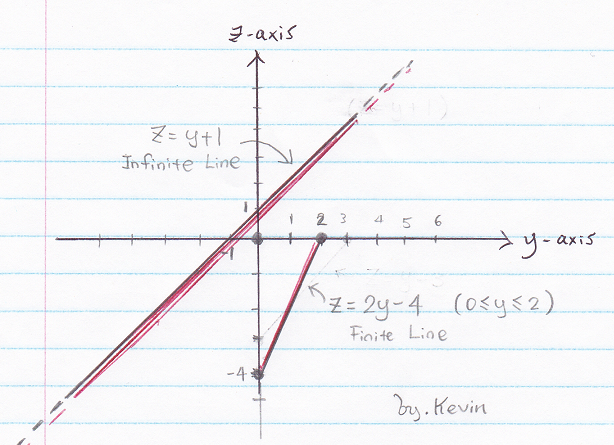 z-axis
z = y+1
Infinite Line
1
1 2 3 4 5 6
-1
y-axis
z = 2y-4 (0≤y≤2)
Finite Line
-4
by. Kevin